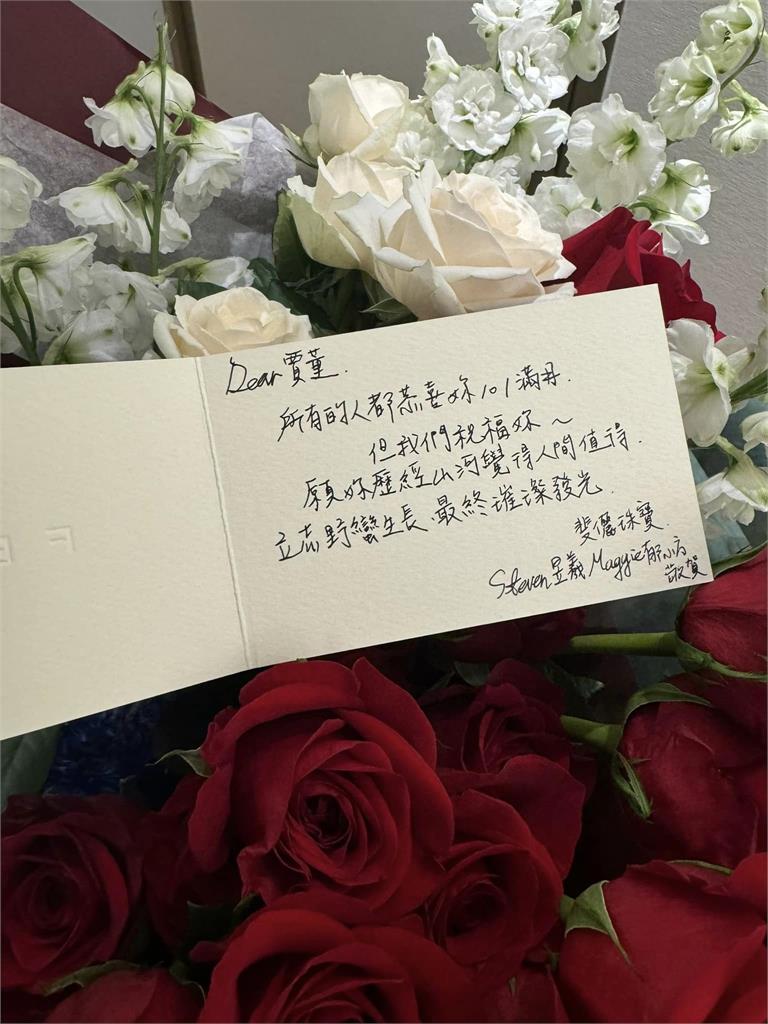 Dear 賈董.
所有的人都恭喜妳101滿月.
但我們祝福妳～
願妳歷經山河覺得人間值得.
立志野蠻生長、最終璀璨發光.
斐儷珠寶
Steven昱羲 Maggie郁方
敬賀